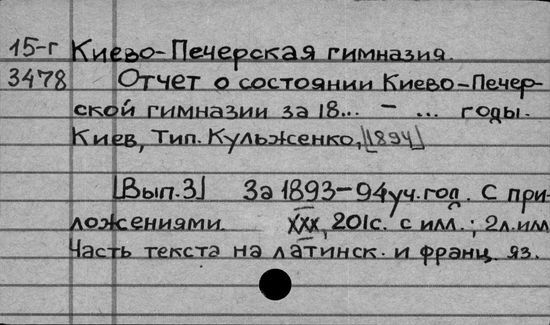 15-г Киево-Печерская гимназия.
3478 Отчет о состоянии Киево-Печер-
ской гимназии за 18... - ... годы.
Киев, Тип. Кульженко, [1894]
[Вып.3] За 1893-94 уч. год. С при-
ложениями. XXX, 201с. с илл.; 2л.илл
Часть текста на латинск. и франц. яз.